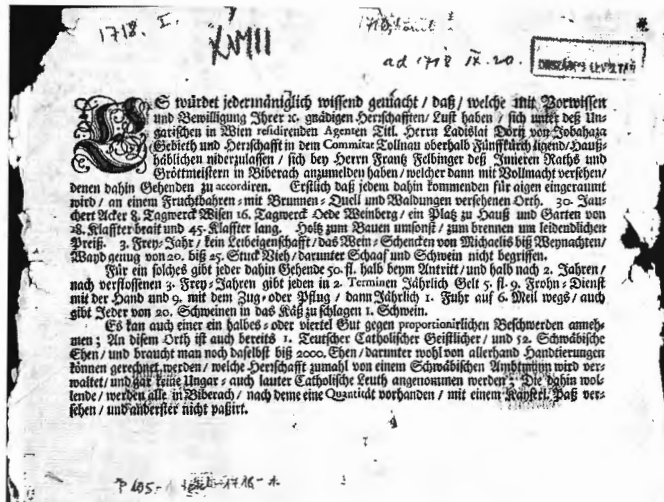 1718. I.
XVIII
ad 1718 IX. 20.
ORSZÁGOS LEVÉLTÁR
ES würdet jedermäniglich wissend gemacht / daß / welche mit Vorwissen
und Bewilligung Ihrer ꝛc. gnädigen Herrschafften / Lust haben / sich unter deß Un-
garischen in Wien residirenden Agenten Titl. Herrn Ladislai Dőri von Jobahaza
Gebieth und Herrschafft in dem Commitat Tollnau oberhalb Fünffkirch ligend / Hauß-
häblichen niderzulassen / sich bey Herrn Frantz Felbinger deß Inneren Raths und
Gröttmeistern in Biberach anzumelden haben / welcher dann mit Vollmacht versehen /
denen dahin Gehenden zu accordiren. Erstlich daß jedem dahin kommenden für aigen eingeraumt
wird / an einem Fruchtbahren- mit Brunnen- Quell und Waldungen versehenen Orth. 30. Jau-
chert Acker 8. Tagwerck Wisen 16. Tagwerck Oede Weinberg / ein Platz zu Hauß und Garten von
28. Klaffter brait und 45. Klaffter lang. Holtz zum Bauen umsonst / zum brennen um leidenlichen
Preiß. 3. Frey-Jahr / kein Leibeigenschafft / das Wein-Schencken von Michaelis biß Weynachten /
Wayd genug von 20. biß 25. Stuck Vieh / darunter Schaaf und Schwein nicht begriffen.
Für ein solches gibt jeder dahin Gehende 50. fl. halb beym Antritt / und halb nach 2. Jahren /
nach verflossenen 3. Frey-Jahren gibt jeden in 2. Terminen Jährlich Gelt 5. fl. 9. Frohn-Dienst
mit der Hand und 9. mit dem Zug- oder Pflug / dann Jährlich 1. Fuhr auf 6. Meil wegs / auch
gibt Jeder von 20. Schweinen in das Käß zu schlagen 1. Schwein.
Es kan auch einer ein halbes- oder viertel Gut gegen proportionirlichen Beschwerden anneh-
men; An disem Orth ist auch bereits 1. Teutscher Catholischer Geistlicher / und 52. Schwäbische
Ehen / und braucht man noch daselbst biß 2000. Ehen / darunter wohl von allerhand Handtierungen
können gerechnet werden / welche Herrschafft zumahl von einem Schwäbischen Ambtmann wird ver-
waltet / und gar keine Ungar- auch lauter Catholische Leuth angenommen werden; Die dahin wol-
lende / werden alle in Biberach / nach deme eine Quantität vorhanden / mit einem Kayserl. Paß ver-
sehen / und anderster nicht paßirt.
P 105-